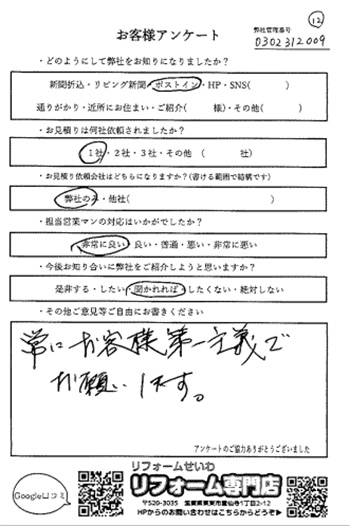 ⑫
お客様アンケート
弊社管理番号
0302312009
・どのようにして弊社をお知りになりましたか？
新聞折込・リビング新聞・ポストイン・HP・SNS(　　　)
通りがかり・近所にお住まい・ご紹介(　　　様)・その他(　　　)
・お見積りは何社依頼されましたか？
1社・2社・3社・その他　(　　　社)
・お見積り依頼会社はどちらになりますか？(書ける範囲で結構です)
弊社のみ・他社(　　　)
・担当営業マンの対応はいかがでしたか？
非常に良い・良い・普通・悪い・非常に悪い
・今後お知り合いに弊社をご紹介しようと思いますか？
是非する・したい・聞かれれば・したくない・絶対しない
・その他ご意見等ご自由にお書きください
常にお客様第一主義で
お願いします。
アンケートのご協力ありがとうございました
Google口コミ
リフォームせいわ
リフォーム専門店
〒520-3035 滋賀県栗東市霊仙寺1丁目2-12
HPからのお問い合わせはこちらからどうぞ